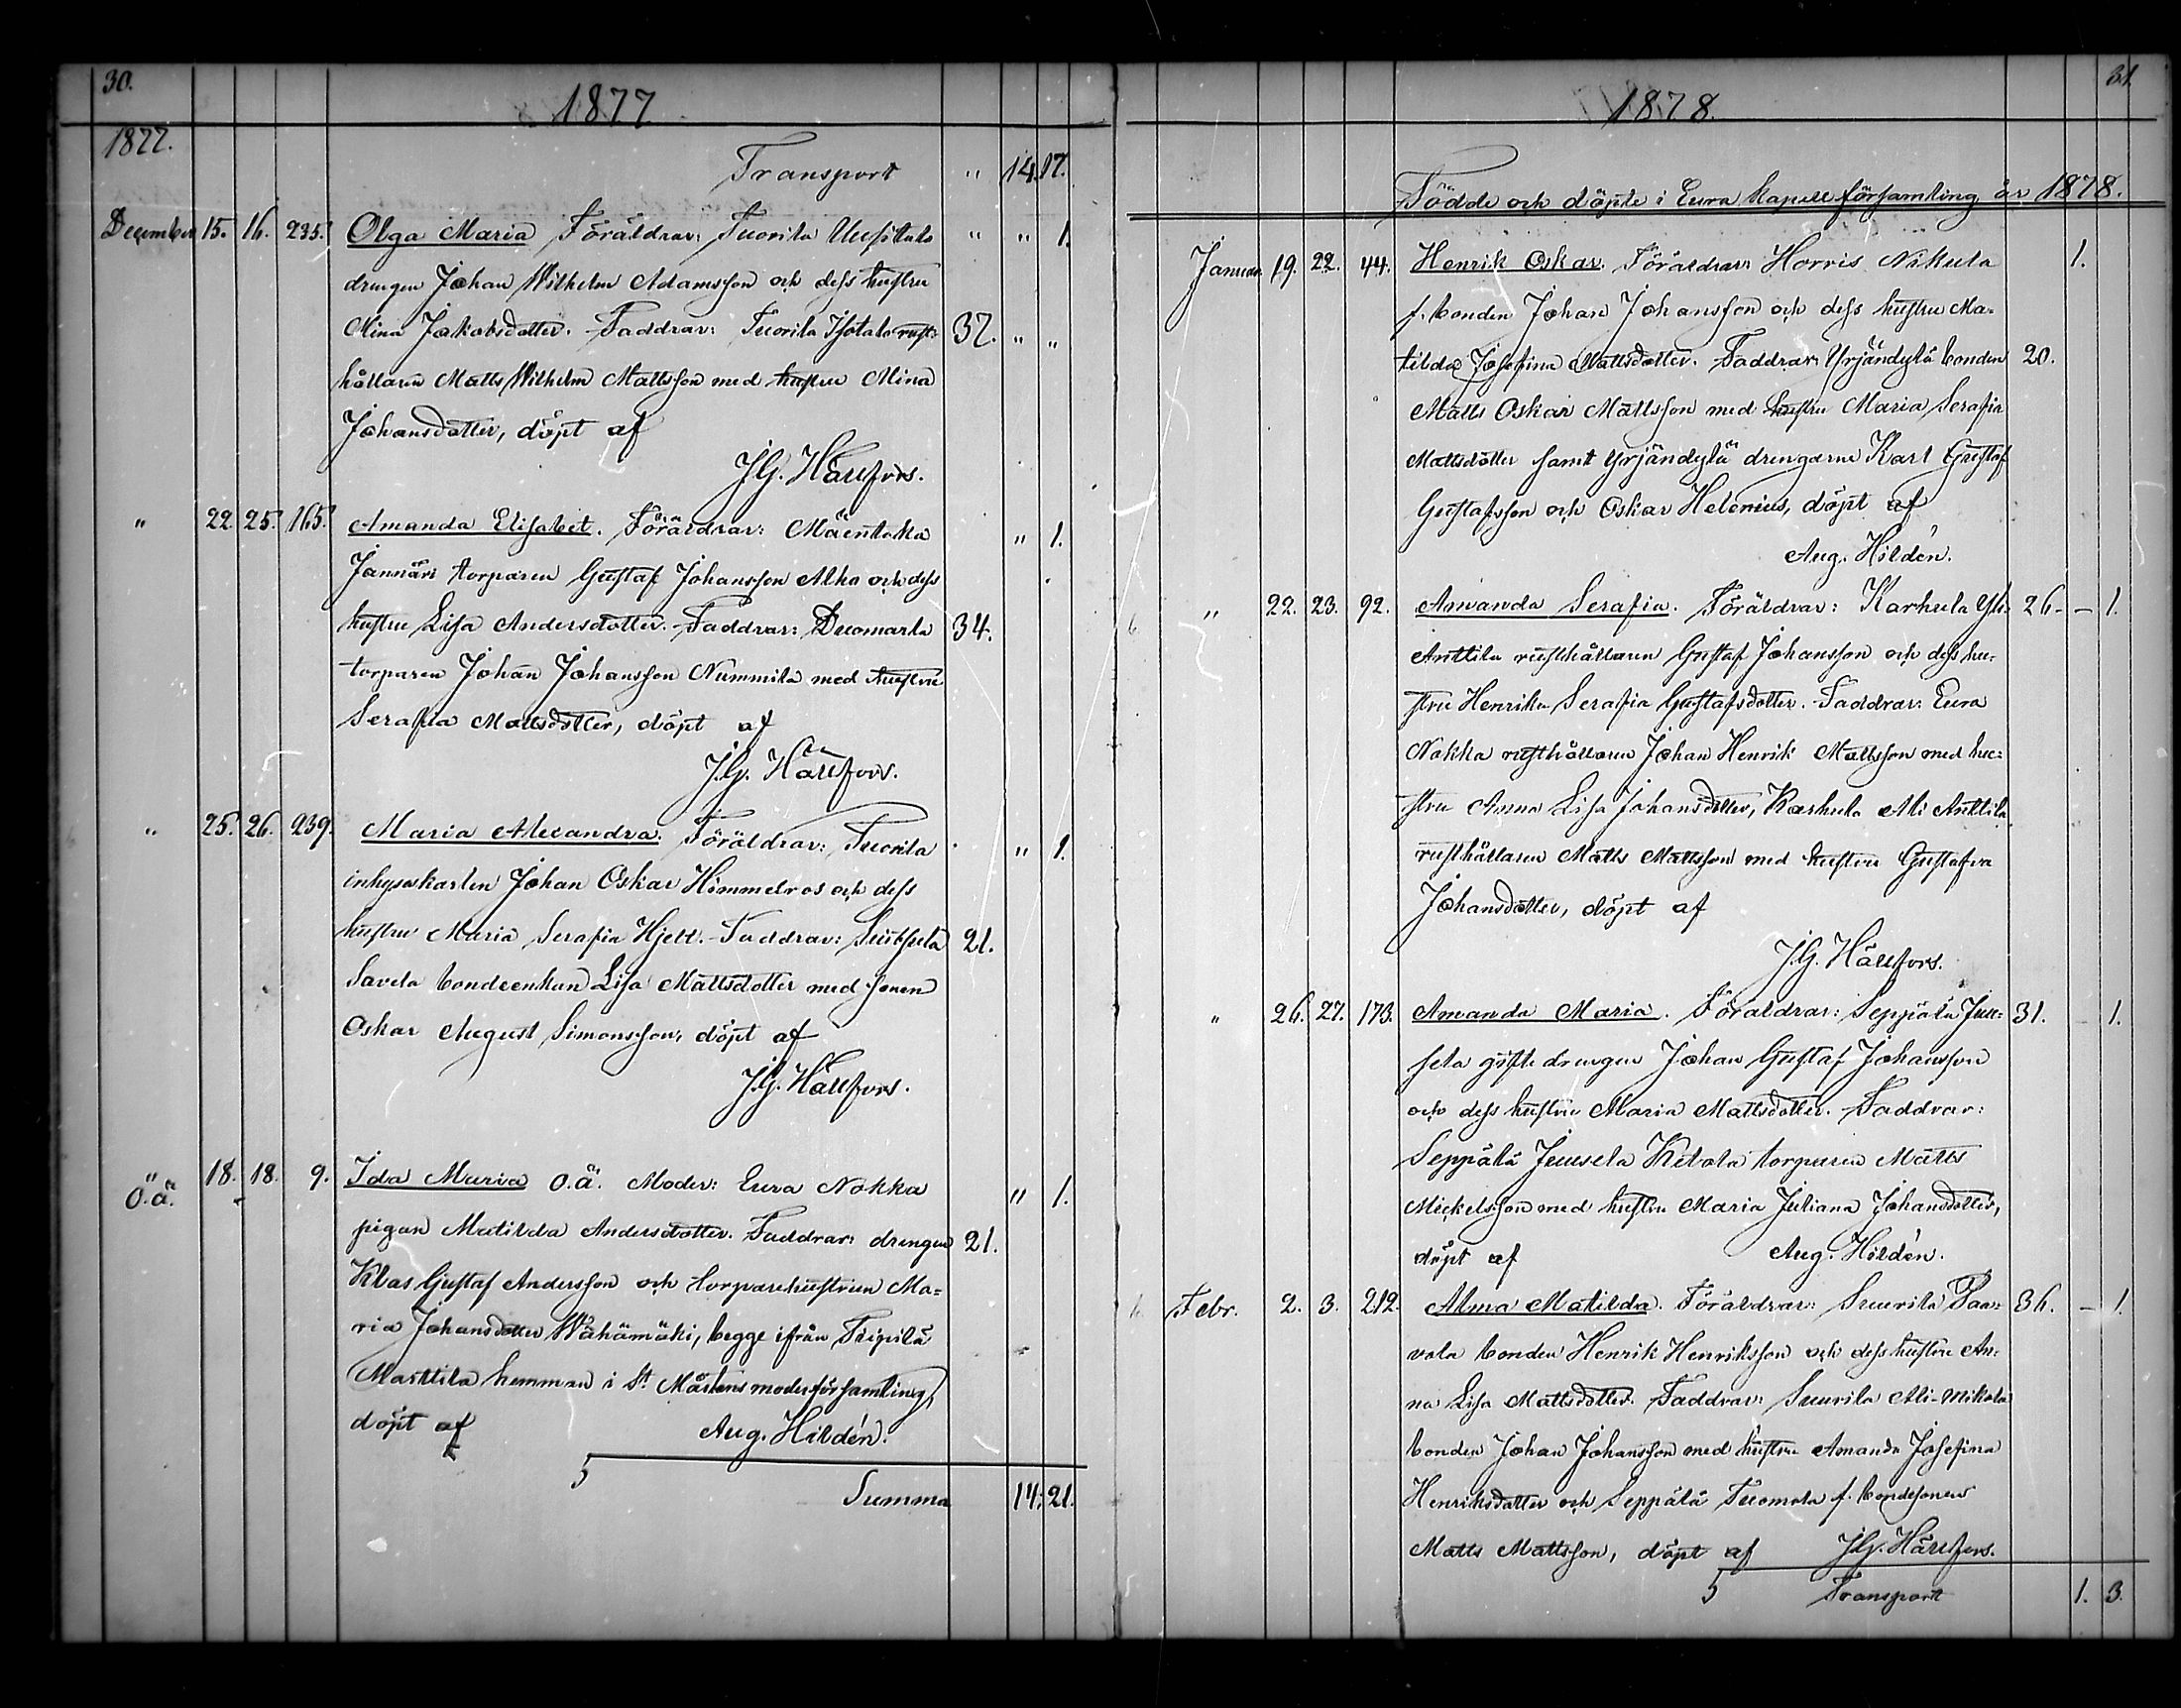 30.
1877
1877.
Transport " 14. 17.
December 15. 16. 235. Olga Maria Föräldrar: Tuorila Uusitalo " " 1.
drengen Johan Wilhelm Adamsson och dess hustru
Mina Jakobsdotter. Faddrar: Tuorila Isotalo rust= 37. " "
hållaren Matts Wilhelm Mattsson med hustru Mina
Johansdotter, döpt af
J.G. Hällfors.
" 22. 25. 165. Amanda Elisabet. Föräldrar: Mäentaka " 1.
Jannäri torparen Gustaf Johansson Alho och dess
hustru Lisa Andersdotter. Faddrar: Duomarla 34.
torparen Johan Johansson Nummila med hustru
Serafia Mattsdotter, döpt af
J.G. Hällfors.
" 25. 26. 239. Maria Alexandra. Föräldrar: Tuorila " 1.
inhyseskarlen Johan Oskar Himmelros och dess
hustru Maria Serafia Hjell. Faddrar: 21.
Savela bondeenkan Lisa Mattsdotter med sonen
Oskar August Simonsson, döpt af
J.G. Hällfors.
" 18. 18. 9. Ida Maria o.ä. Moder: Eura Nokka " 1.
O.ä.
pigan Matilda Andersdotter. Faddrar: drengen 21.
Klas Gustaf Andersson och torparehustrun Ma=
ria Johansdotter Wähämäki, begge ifrån
Marttila hemman i St. Mårtens moderförsamling,
döpt af Aug. Hildén.
5
Summa 14. 21.
31.
1878.
Födde och döpte i Eura Kapellförsamling år 1878.
Januar. 19. 22. 44. Henrik Oskar. Föräldrar: Horris Nikula 1.
f. bonden Johan Johansson och dess hustru Ma=
tilda Josefina Mattsdotter. Faddrar: Yrjändylä bonden 20.
Matts Oskar Mattsson med hustru Maria Serafia
Mattsdotter samt Yrjändylä drengarne Karl Gustaf
Gustafsson och Oskar Helenius, döpt af
Aug. Hildén.
" 22. 23. 92. Amanda Serafia. Föräldrar: Karhula Yli= 26. - 1.
Anttila rusthållaren Gustaf Johansson och dess hu=
stru Henrika Serafia Gustafsdotter. Faddrar: Eura
Nokka rusthållaren Johan Henrik Mattsson med hu=
stru Anna Lisa Johansdotter, Karhula Ali Anttila
rusthållaren Matts Mattsson med hustru Gustafva
Johansdotter, döpt af
J.G. Hällfors.
" 26. 27. 173. Amanda Maria. Föräldrar: Seppälä Juu= 31. - 1.
sela gifte drengen Johan Gustaf Johansson
och dess hustru Maria Mattsdotter. Faddrar:
Seppälä Juusela Ketola torparen Matts
Mickelsson med hustru Maria Juliana Johansdotter,
döpt af Aug. Hildén.
Febr. 2. 3. 212. Alma Matilda. Föräldrar: Suurila Paa= 36. - 1.
vola bonden Henrik Henriksson och dess hustru An=
na Lisa Mattsdotter. Faddrar: Suurila Ali-Mikola
bonden Johan Johansson med hustru Amanda Josefina
Henriksdotter och Seppälä Tuomola f. bondesonen
Matts Mattsson, döpt af J.G. Hällfors.
5 Transport 1. 3.